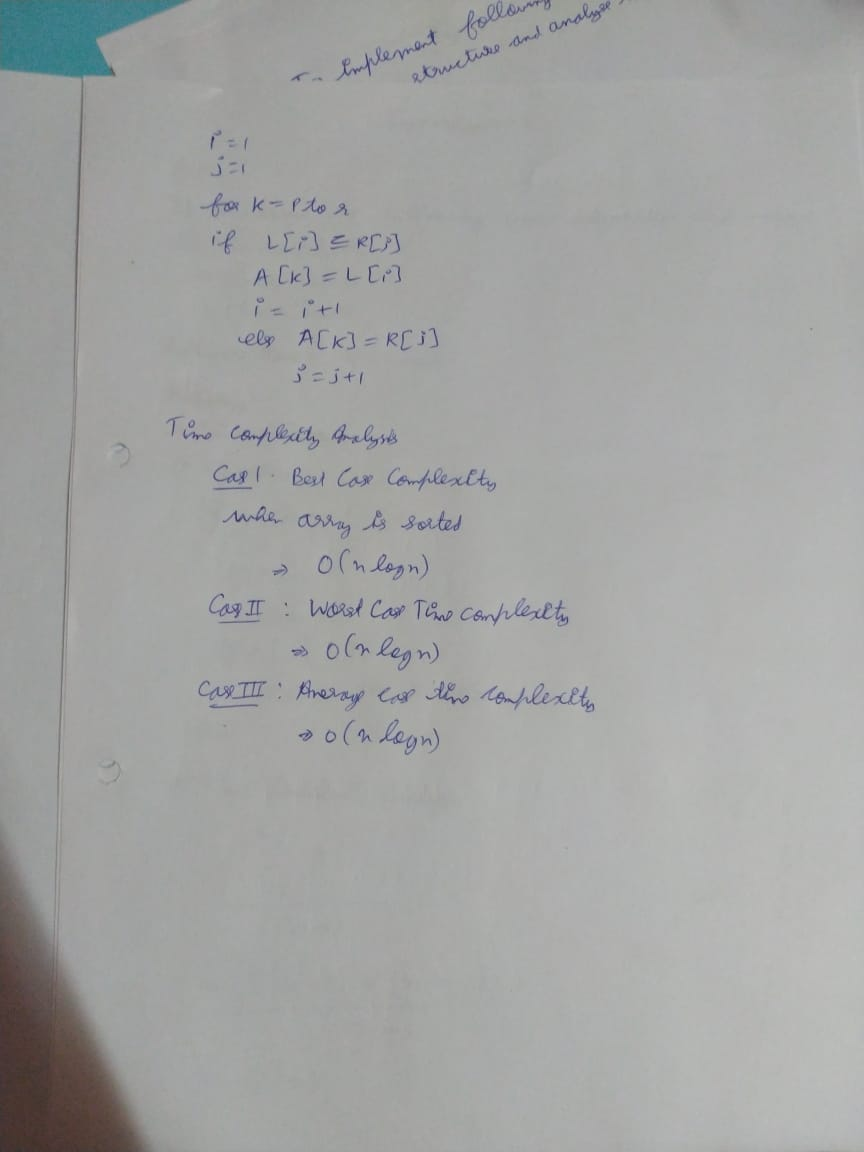 Implement following
structure and analyze
i = 1
j = 1
for k = P to r
if L[i] ≤ R[j]
A[k] = L[i]
i = i+1
else A[k] = R[j]
j = j+1
Time Complexity Analysis
Case I. Best Case Complexity
when array is sorted
⇒ O(n logn)
Case II : Worst Case Time complexity
⇒ O(n logn)
Case III : Average case time complexity
⇒ O(n logn)